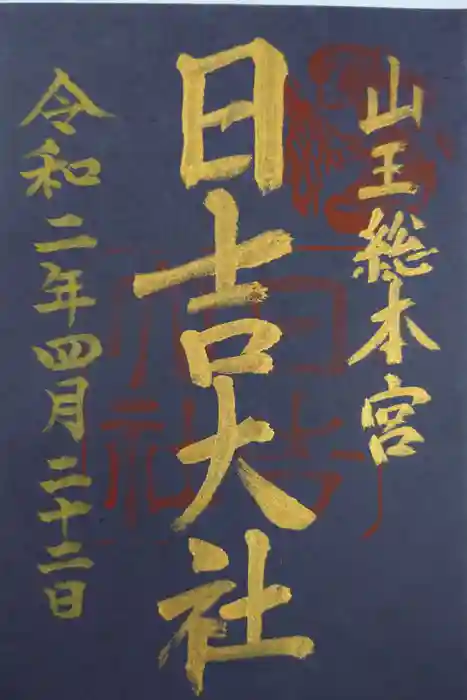 山王総本宮
日吉大社
令和二年四月二十二日
日吉大社